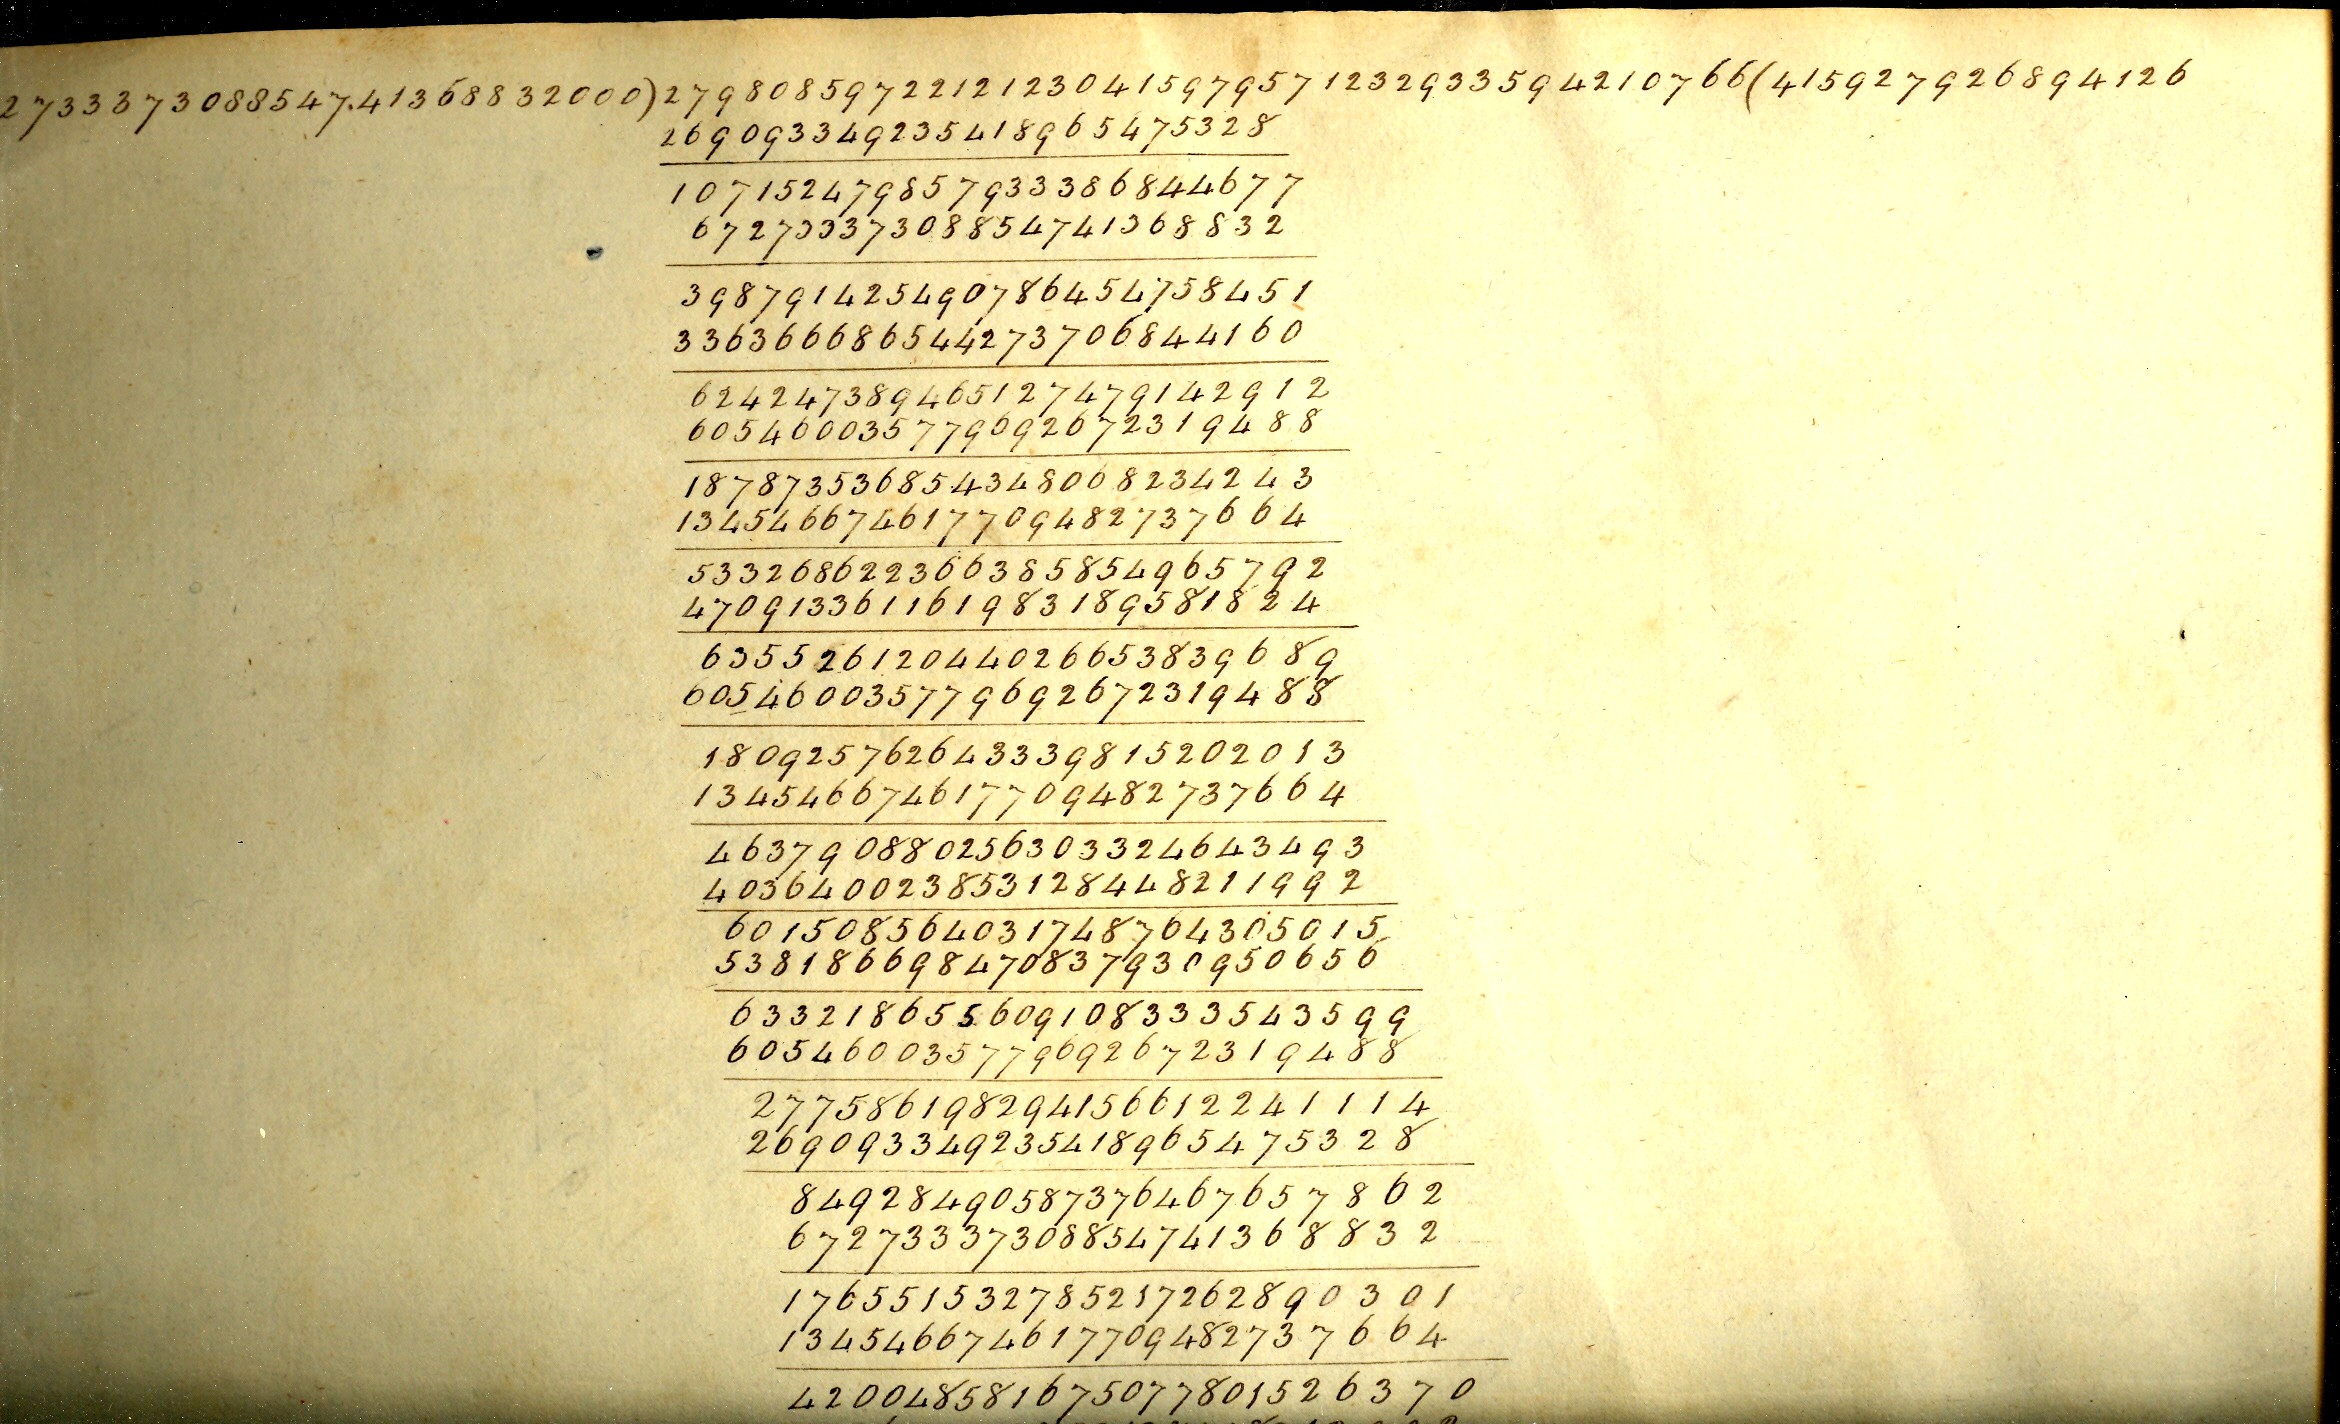 2733373088547.41368832000)27980859722121230415979571232933594210766(415927926894126
269093349235418965475328
107152479857933386844677
67273337308854741368832
398791425490786454758451
336366686544273706844160
624247389465127479142912
605460035779692672319488
187873536854348068234243
134546674617709482737664
533268622366385854965792
470913361161983189581824
63552612044026653839689
605460035779692672319488
180925762643339815202013
134546674617709482737664
463790880256303324643493
403640023853128448211992
601508564031748764305015
538186698470837930950656
633218655609108333543599
605460035779692672319488
277586198294156612241114
269093349235418965475328
84928490587376467657862
67273337308854741368832
176551532785217262890301
134546674617709482737664
420048581675077801526370